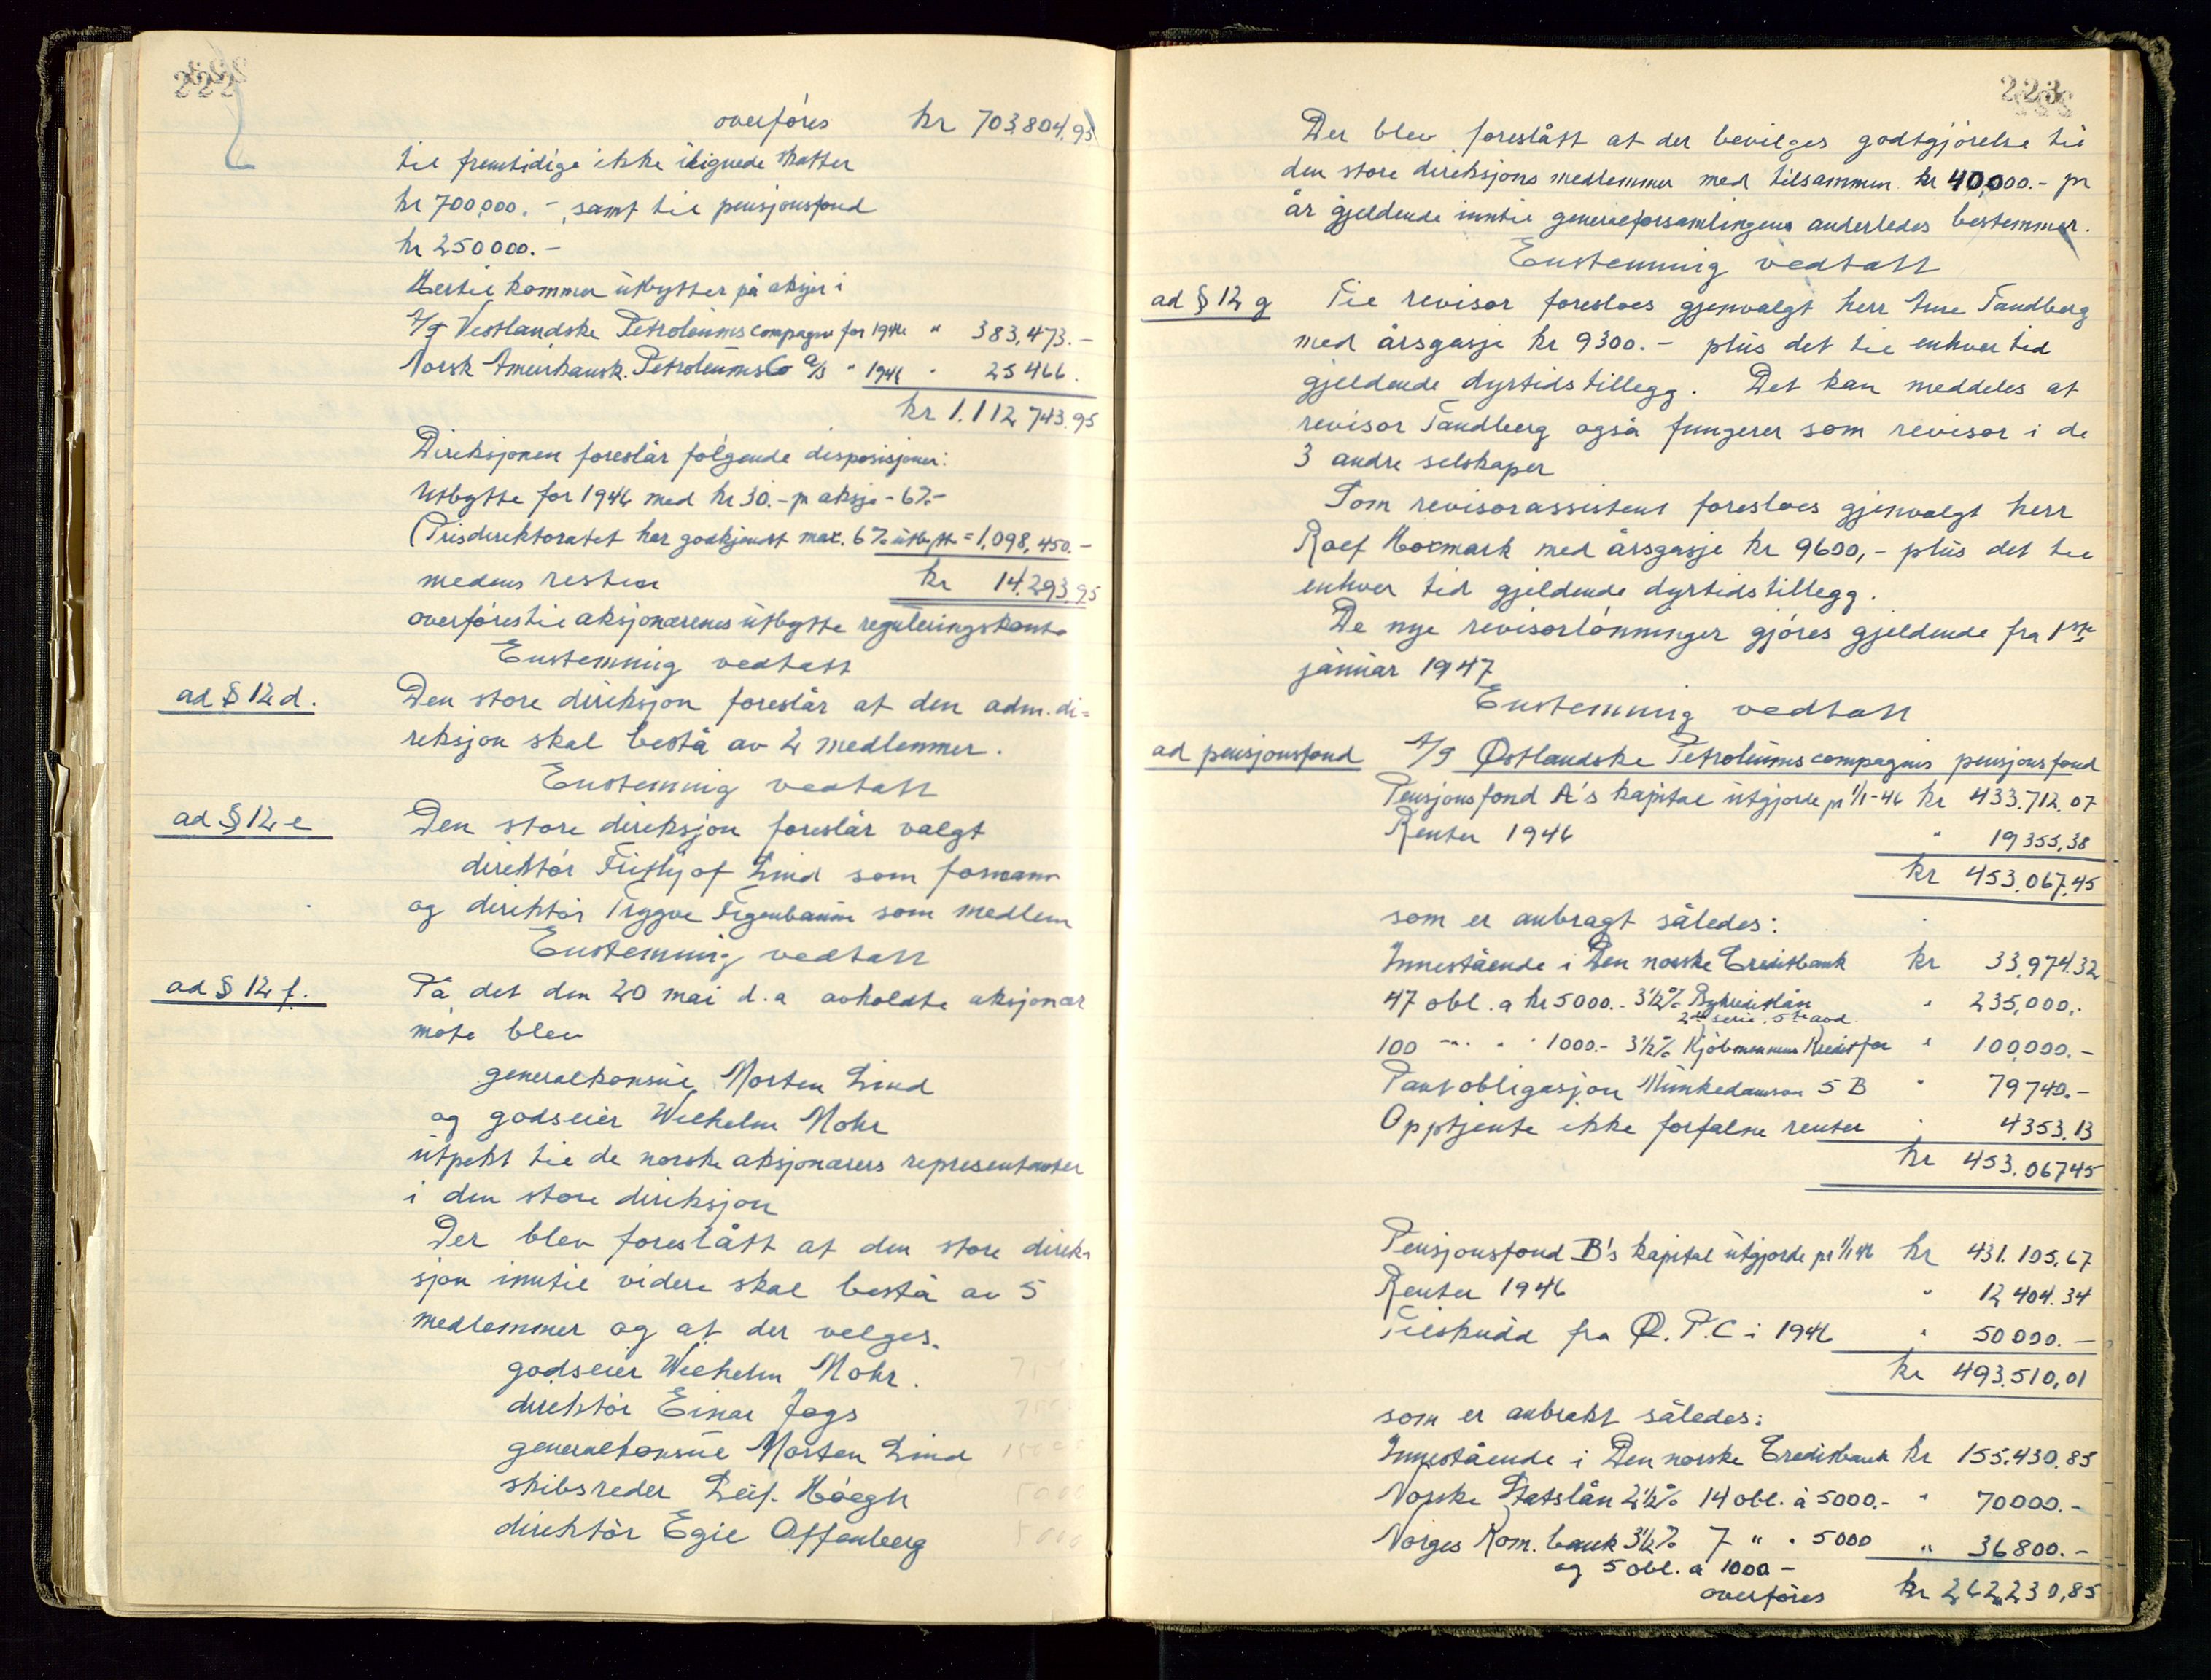 222
overføres kr 703.804,95
til fremtidige ikke ilignede skatter
kr 700,000.-, samt til pensjonsfond
kr 250000.-
Hertil kommer utbytter på aksjer i
A/S Vestlandske Petroleumscompagni for 1946 " 383,473.-
Norsk Amerikansk. Petroleums Co A/S " 1946 " 25466.
kr 1.112,743.95
Direksjonen foreslår følgende disposisjoner:
Utbytte for 1946 med kr 30.- pr aksje - 6%-
(Prisdirektoratet har godkjendt max. 6% utbytte = 1,098,450.-
medens resten kr 14.293.95
overføres til aksjonærenes utbytte reguleringskonto
Enstemmig vedtatt
ad § 12 d. Den store direksjon foreslår at den adm. di=
reksjon skal bestå av 2 medlemmer.
Enstemmig vedtatt
ad § 12 e Den store direksjon foreslår valgt
direktør Fritjhof Lind som formann
og direktør Trygve Figenbaum som medlem
Enstemmig vedtatt
ad § 12 f. På det den 20 mai d.a avholdte aksjonær
møte blev
generalkonsul Morten Lind
og godseier Wilhelm Mohr
utpekt til de norske aksjonærers representanter
i den store direksjon
Der blev foreslått at den store direk-
sjon inntil videre skal bestå av 5
medlemmer og at der velges.
godseier Wilhelm Mohr.
direktør Einar Jags
generalkonsul Morten Lind
skibsreder Leif Høegh
direktør Egil Offenberg
223
Der blev foreslått at der bevilges godtgjørelse til
den store direksjons medlemmer med tilsammen kr 40,000.- pr
år gjeldende inntil generalforsamlingens anderledes bestemmer.
Enstemmig vedtatt
ad § 12 g Til revisor foresloes gjenvalgt herr Arne Tandberg
med årsgasje kr 9300.- plus det til enhver tid
gjeldende dyrtidstillegg. Det kan meddeles at
revisor Tandberg også fungerer som revisor i de
3 andre selskaper
Som revisorassistent foresloes gjenvalgt herr
Rolf Hoxmark med årsgasje kr 9600,- plus det til
enhver tid gjeldende dyrtidstillegg.
De nye revisorlønninger gjøres gjeldende fra 1ste
januar 1947
Enstemmig vedtatt
ad pensjonsfond A/S Østlandske Petroleumscompagnis pensjonsfond
Pensjonsfond A's kapital utgjorde pr 1/1-46 kr 433.712.07
Renter 1946 " 19355,38
kr 453.067.45
som er anbragt således:
Innestående i Den norske Creditbank kr 33,974.32
47 obl. a kr 5000.- 3½% Bykreditlån " 235,000.-
2den serie, 5te avd.
100 -"- " " 1000.- 3½% Kjøbmennenes Kreditfor " 100,000.-
Pantobligasjon Munkedamsvn 5 B " 79740.-
Opptjente ikke forfalne renter " 4353.13
kr 453.067.45
Pensjonsfond B's kapital utgjorde pr 1/1 46 kr 431.105,67
Renter 1946 " 12404.34
Tilskudd fra Ø.P.C i 1946 " 50000.-
kr 493.510,01
som er anbrakt således:
Innestående i Den norske Creditbank kr 155.430.85
Norske Statslån 2½% 14 obl. à 5000.- " 70000.-
Norges Kom. bank 3½% 7 " " 5000 " 36800.-
og 5 obl. a 1000-
overføres kr 262,230,85